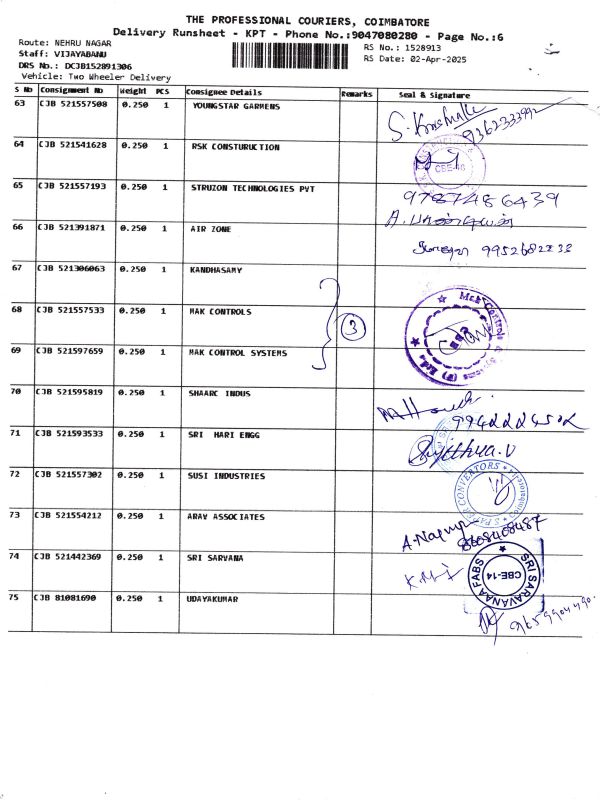 THE PROFESSIONAL COURIERS, COIMBATORE
Delivery Runsheet - KPT - Phone No.:9047080280 - Page No.:6
Route: NEHRU NAGAR
RS No.: 1528913
Staff: VIJAYABANU
RS Date: 02-Apr-2025
DRS No.: DCJB152891306
Vehicle: Two Wheeler Delivery
S No Consignment No Weight PCS Consignee Details Remarks Seal & Signature
63 CJB 521557508 0.250 1 YOUNGSTAR GARMENS
9362333992
64 CJB 521541628 0.250 1 RSK CONSTURUCTION
CBE-46
65 CJB 521557193 0.250 1 STRUZON TECHNOLOGIES PVT
9787486439
66 CJB 521391871 0.250 1 AIR ZONE
67 CJB 521306063 0.250 1 KANDHASAMY
68 CJB 521557533 0.250 1 MAK CONTROLS
3
69 CJB 521597659 0.250 1 MAK CONTROL SYSTEMS
70 CJB 521595819 0.250 1 SHAARC INDUS
71 CJB 521593533 0.250 1 SRI HARI ENGG
Sujithra.V
72 CJB 521557302 0.250 1 SUSI INDUSTRIES
S PAPER CONVERTORS
73 CJB 521554212 0.250 1 ARAV ASSOCIATES
8608468487
74 CJB 521442369 0.250 1 SRI SARVANA
SRI SARAVANAA FABS
CBE-14
75 CJB 81081690 0.250 1 UDAYAKUMAR